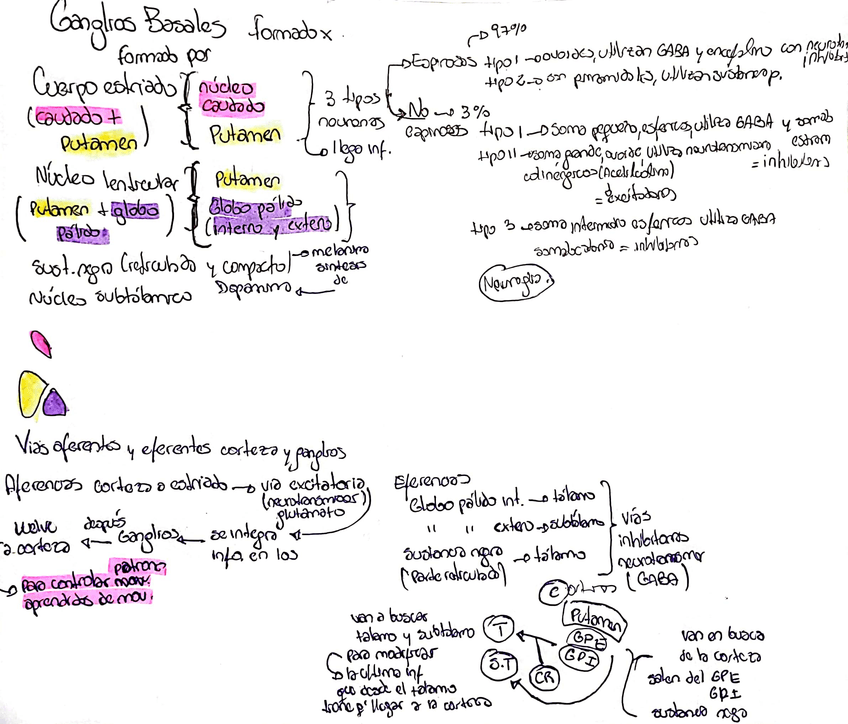 Ganglios Basales formado x.
formado por
Cuerpo estriado
(caudado +
Putamen)
núcleo
caudado
Putamen
3 tipos
neuronas
llega inf.
97%
Espinosas tipo 1 → ovoides, utilizan GABA y encefalina con neurotr.
inhibitors
tipo 2 → con piramidales, utilizan sustancia p.
No → 3%
espinosas
tipo 1 → soma pequeño, esférico, utiliza GABA y somatostatina
= inhibitors
tipo 11 → soma grande, ovoide utiliza neurotransmisor
colinérgicos (Acetilcolina)
= Excitadoras
tipo 3 → soma intermedio esféricos utiliza GABA
= inhibitoros
Neuroglia.
Núcleo lenticular
(Putamen + globo
pálido)
Putamen
Globo pálido
(interno y externo)
Sust. negra (reticulada y compacta) → melanina
sintesis
de
Dopamina
Núcleo subtálamico
Vías aferentes y eferentes corteza y ganglios
Aferencias corteza a estriado → vía excitatoria
(neurotransmisor)
glutamato
se integra
infa en los
Ganglios
después
vuelve
a corteza
→ para controlar patrones
aprendidos de mov.
Eferencias
Globo pálido int. → tálamo
" " externo → subtálamo
sustancia negra
(Parte reticulada)
→ tálamo
vías
inhibitorias
neurotransmisor
(GABA)
C
Putamen
GPE
GPI
T
S.T
CR
van a buscar
tálamo y subtálamo
para modificar
la última inf
que desde el tálamo
tiene p' llegar a la corteza
van en busca
de la corteza
salen del GPE
GPI
sustancia negra